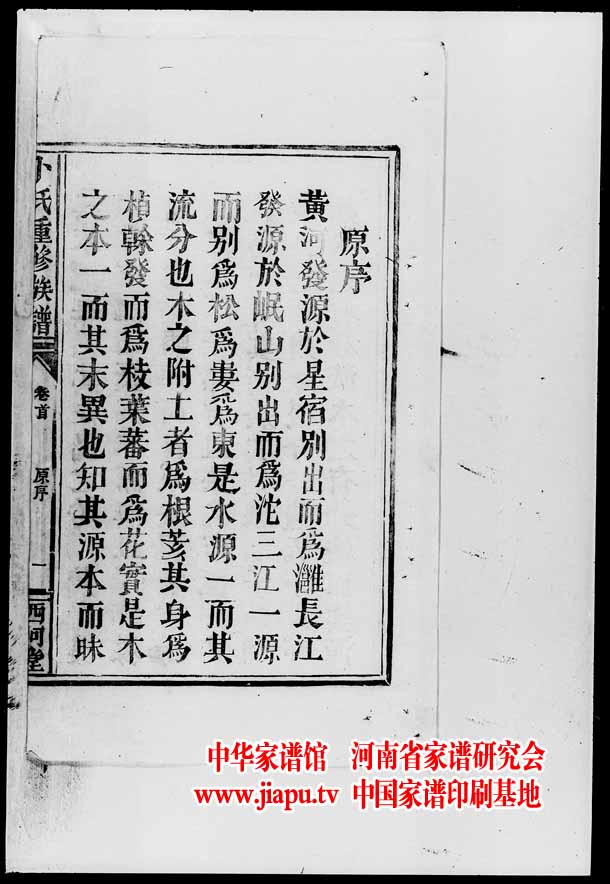 原序
黃河發源於星宿別出而爲灉長江
發源於岷山別出而爲沱三江一源
而別爲松爲婁爲東是水源一而其
流分也木之附土者爲根荄其身爲
楨榦發而爲枝葉蕃而爲花實是木
之本一而其末異也知其源本而昧
卜氏重修族譜
卷首
原序
一
西河堂
中华家谱馆 河南省家谱研究会
www.jiapu.tv 中国家谱印刷基地